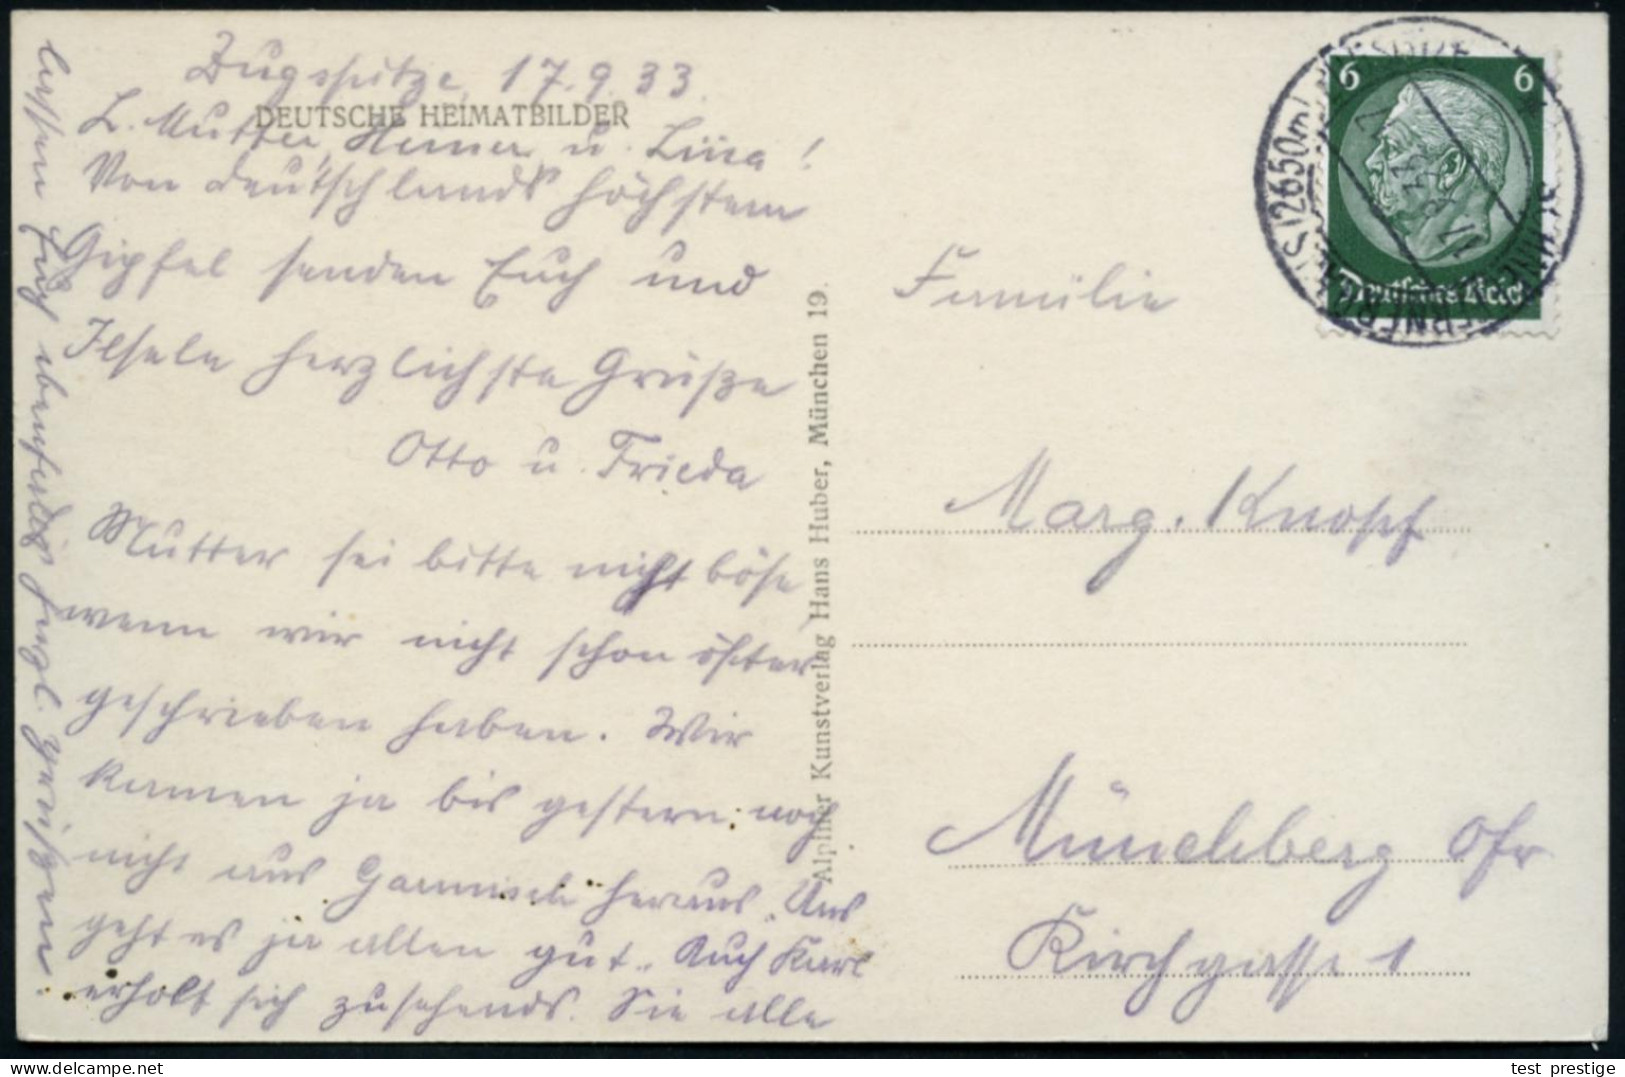 Zugspitze, 17.9.33.
DEUTSCHE HEIMATBILDER
L. Mutter, Heiner u. Lina!
Von Deutschlands höchstem
Gipfel senden Euch und
Ilsele herzlichste Grüße
Otto u. Frieda
Mutter sei bitte nicht böse
wenn wir nicht schon öfter
geschrieben haben. Wir
kamen ja bis gestern noch
nicht aus Garmisch heraus. Uns
geht es ja allen gut. Auch Karl
erholt sich zusehends. Sie alle
lassen Euch ebenfalls herzl. grüßen
Alpiner Kunstverlag Hans Huber, München 19.
6 6
Deutsches Reich
(2650m)
17.9.33
Familie
Marg. Knopf
Münchberg Ofr
Kirchgasse 1
test prestige